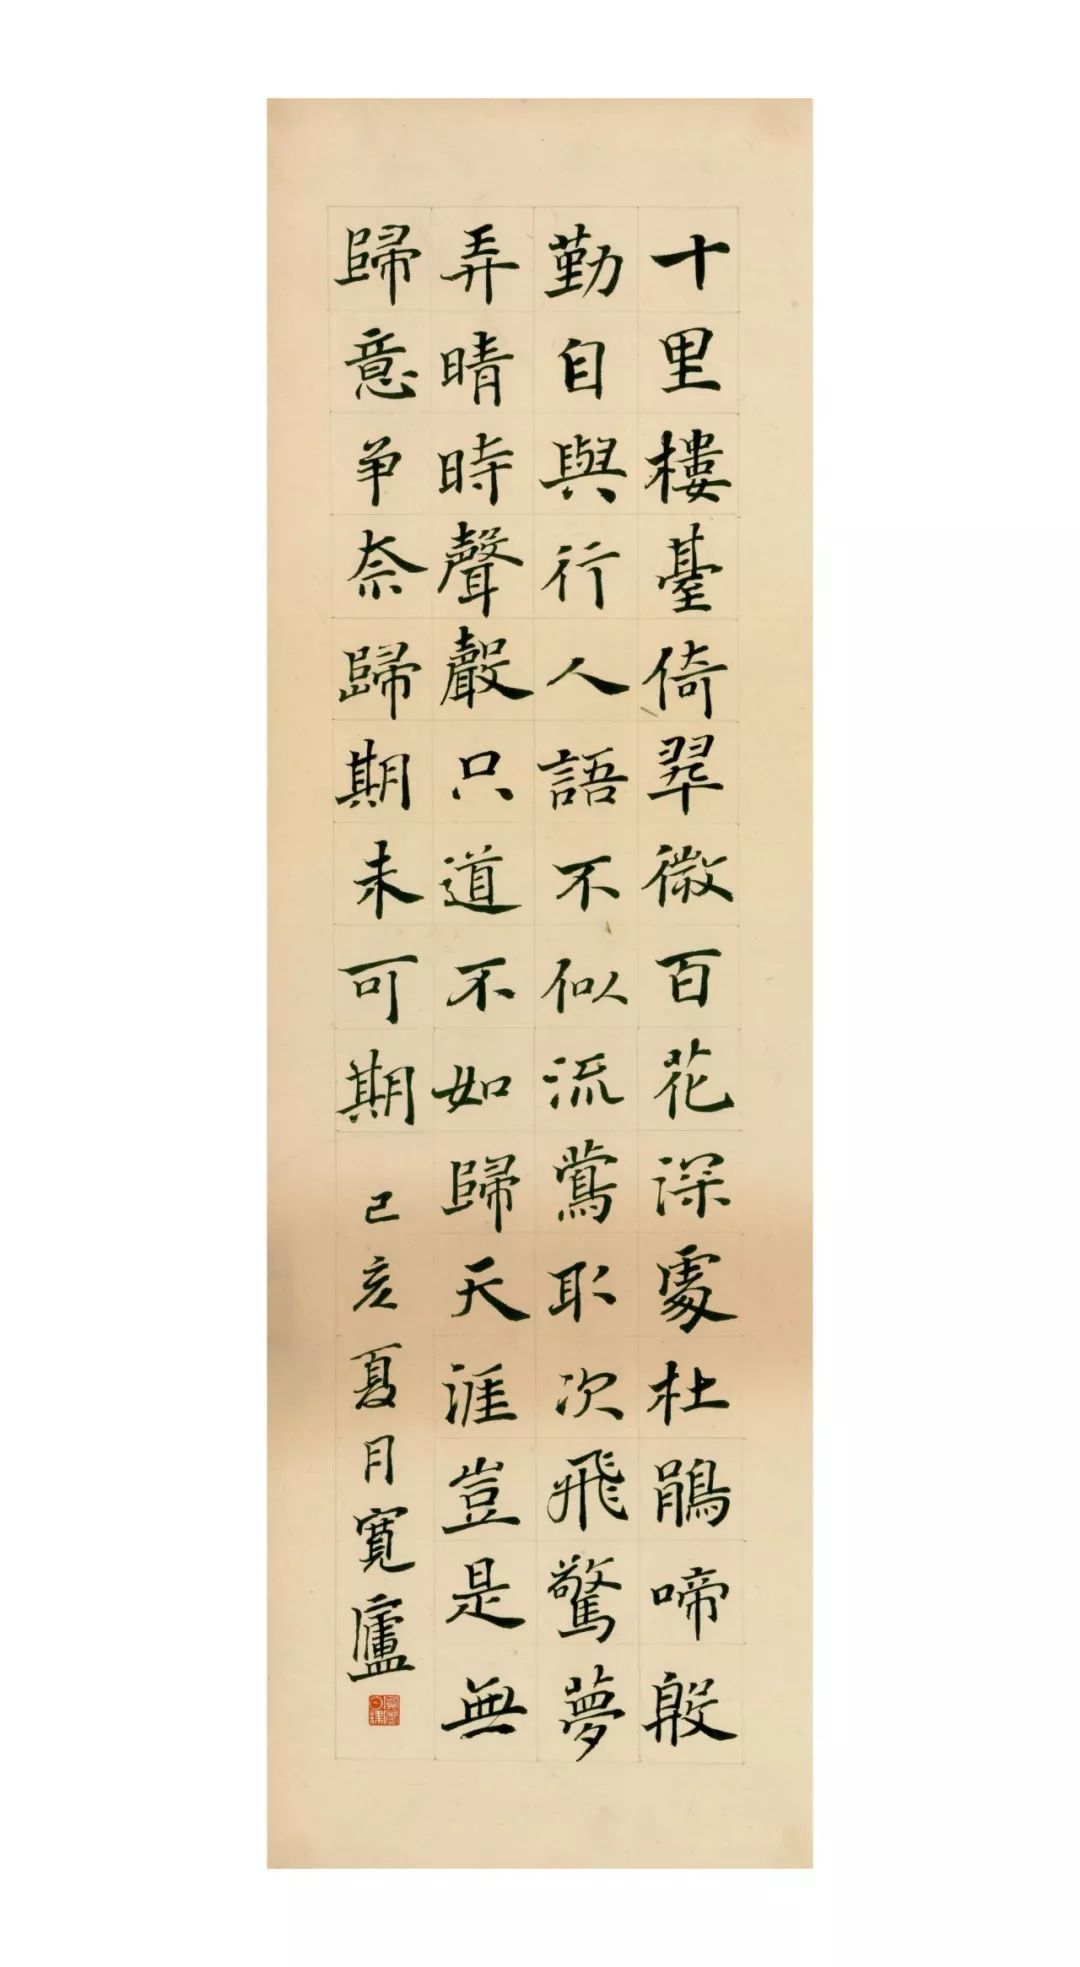 十里樓臺倚翠微百花深處杜鵑啼殷
勤自與行人語不似流鶯取次飛驚夢
弄晴時聲聲只道不如歸天涯豈是無
歸意争奈歸期未可期己亥夏月寬廬